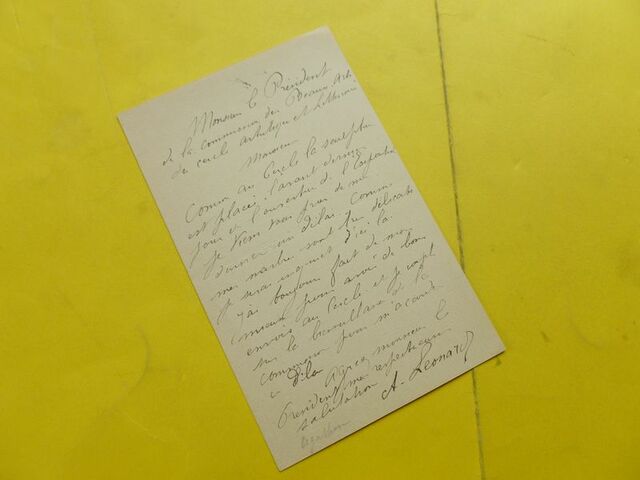 Monsieur le Président
de la commission des Beaux Arts
du cercle Artistique et Littéraire
Monsieur
Comme au Cercle la sculpture
est placée l'avant dernier
jour de l'ouverture de l'Exposition
je viens vous prier de me
donner un délai. Comme
mes marbres sont très délicats
je suis inquiet d'ici là.
J'ai toujours fait de mon
mieux pour avoir de bons
envois au Cercle et je compte
sur la bienveillance de la
commission pour m'accorder
ce délai
Agréez monsieur le
Président mes respectueuses
salutations
A. Leonard
Agathon